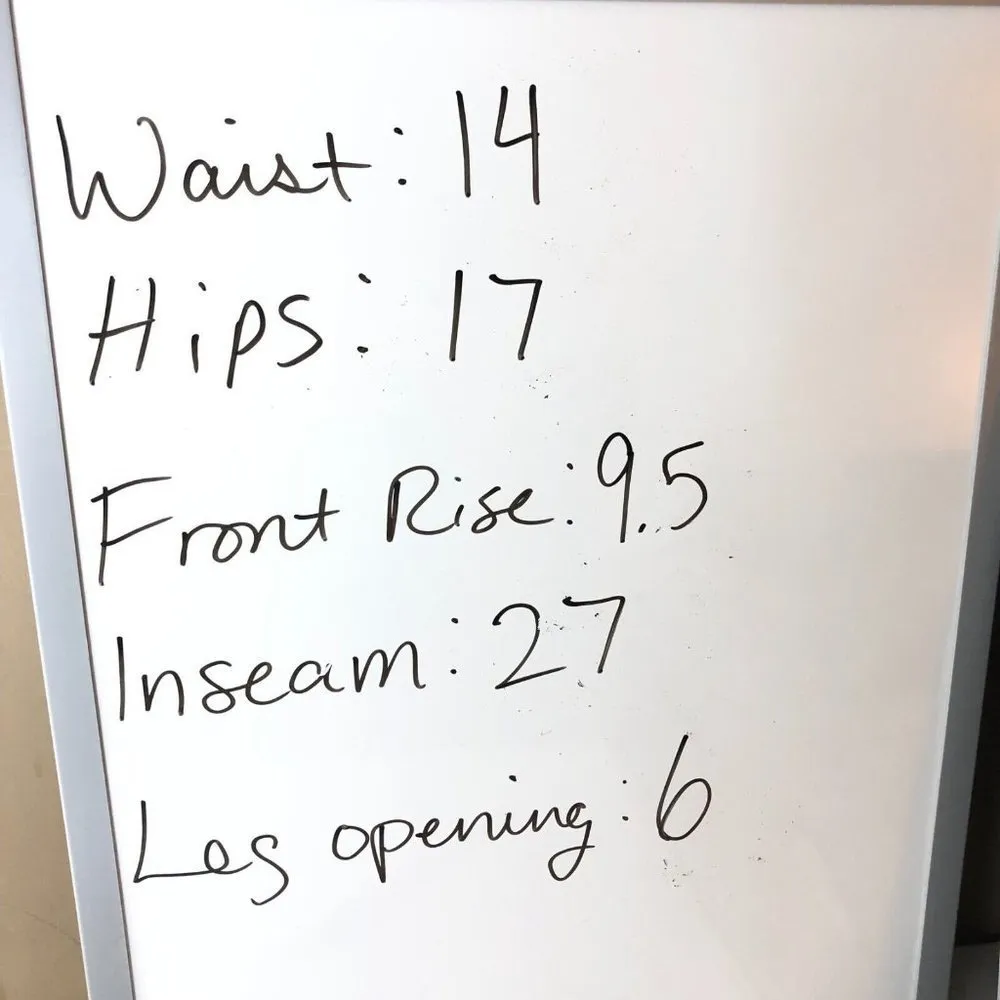 Waist: 14
Hips: 17
Front Rise: 9.5
Inseam: 27
Leg opening: 6